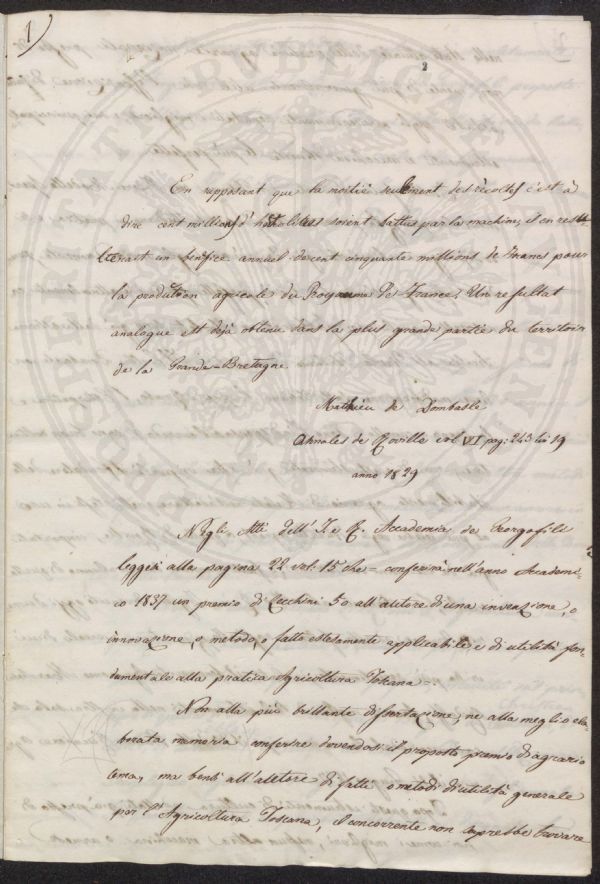 1)
2
En supposant que la moitié seulement des récoltes c'est à
dire cent millions d'hectolitres soient battus par la machine, il en resul-
lterait un benfice annuel de cent cinquante millions de Francs pour
la prodution agricole du Royaume de France; Un resultat
analogue est dèjà obtenu dans la plus grande partie du territoir
de la Grande-Bretagne
Mathieu de Dombasle
Annales de Roville vol VI pag: 243 lin 19
anno 1829
Negli Atti dell' I. e R. Accademia de Georgofili
leggesi alla pagina 22 vol: 15 che = conferirà nell'anno Accademi-
co 1837 un premio di Zecchini 50 all'autore di una invenzione, o
innovazione, o metodo, o fatto estesamente applicabile e di utilità fon-
damentale alla pratica Agricoltura Toscana =.
Non alla più brillante dissertazione, ne alla meglio ela-
borata memoria conferire dovendosi il proposto premio di agrario
tema, ma bensì all'autore di fatti o metodi di utilità generale
per l'Agricoltura Toscana, il concorrente non saprebbe trovare